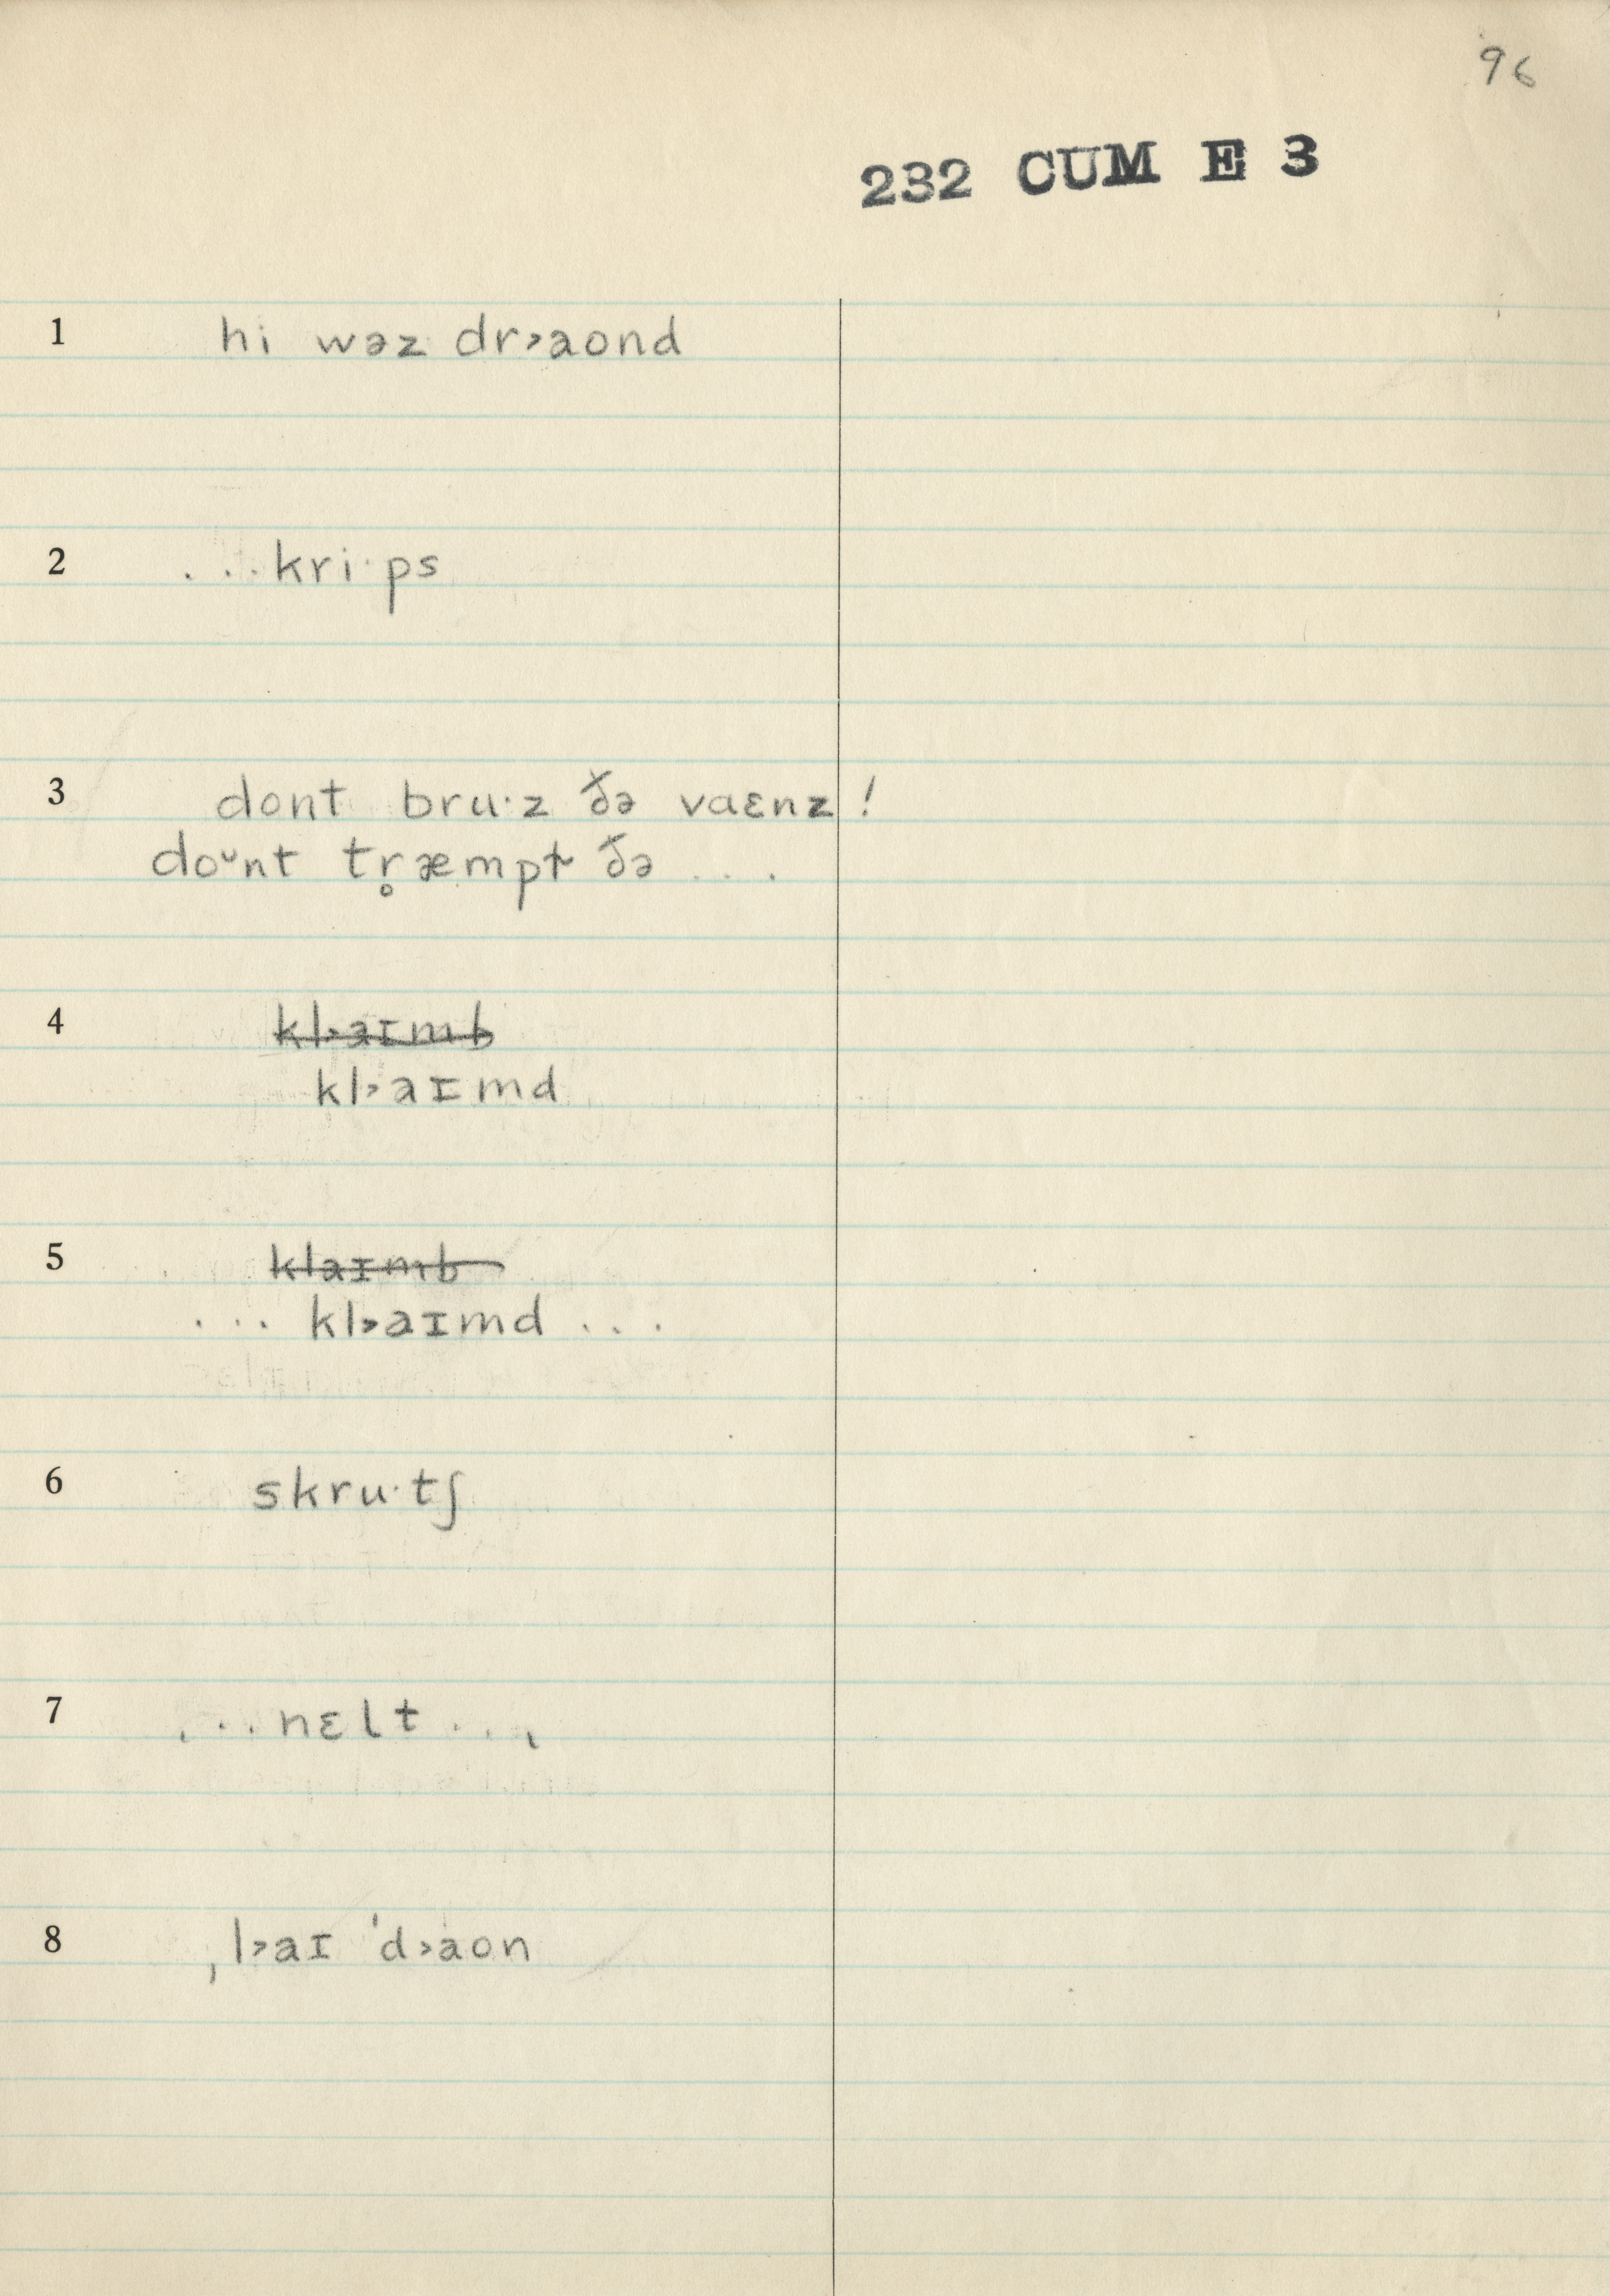 96
232 CUM E 3
1 hi wəz dr˃aond
2 . . . kri·ps
3 dont bru·z ðə vaɛnz !
doᵕnt tr̥æmpt ðə . . .
4 ~~kl˃aɪmb~~
kl˃aɪmd
5 ~~klaɪmb~~
. . . kl˃aɪmd . . .
6 skru·tʃ
7 . . . nɛlt . . .
8 ˌl˃aɪ ˈd˃aon